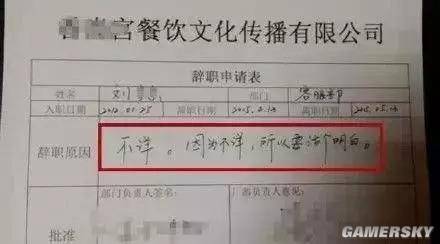 宫餐饮文化传播有限公司
辞职申请表
姓名 刘 部门 客服部
入职日期 2012.01.25 辞职日期 2015.2.14 离职日期
辞职原因 不详。因为不详，所以要活个明白。
部门负责人签名： 厂部负责人意见：
批准
GAMERSKY